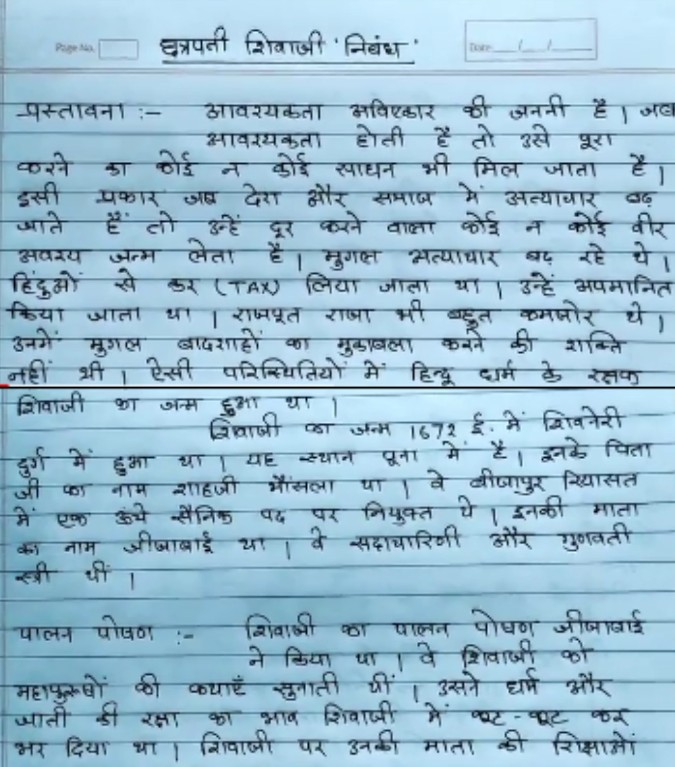 Page No.
Date / /
छत्रपती शिवाजी 'निबंध'
प्रस्तावना :- आवश्यकता अविष्कार की जननी है। जब
आवश्यकता होती है तो उसे पूरा
करने का कोई न कोई साधन भी मिल जाता है।
इसी प्रकार जब देश और समाज में अत्याचार बढ़
जाते हैं तो उन्हें दूर करने वाला कोई न कोई वीर
अवश्य जन्म लेता है। मुगल अत्याचार बढ़ रहे थे।
हिंदुओं से कर (TAX) लिया जाता था। उन्हें अपमानित
किया जाता था। राजपूत राजा भी बहुत कमजोर थे।
उनमें मुगल बादशाहों का मुकाबला करने की शक्ति
नहीं थी। ऐसी परिस्थितियों में हिन्दू धर्म के रक्षक
शिवाजी का जन्म हुआ था।
शिवाजी का जन्म 1672 ई. में शिवनेरी
दुर्ग में हुआ था। यह स्थान पूना में है। इनके पिता
जी का नाम शाहजी भौंसला था। वे बीजापुर रियासत
में एक ऊंचे सैनिक पद पर नियुक्त थे। इनकी माता
का नाम जीजाबाई था। वे सदाचारिणी और गुणवती
स्त्री थीं।
पालन पोषण :- शिवाजी का पालन पोषण जीजाबाई
ने किया था। वे शिवाजी को
महापुरुषों की कथाएँ सुनाती थीं। उसने धर्म और
जाती की रक्षा का भाव शिवाजी में कूट-कूट कर
भर दिया था। शिवाजी पर उनकी माता की शिक्षाओं